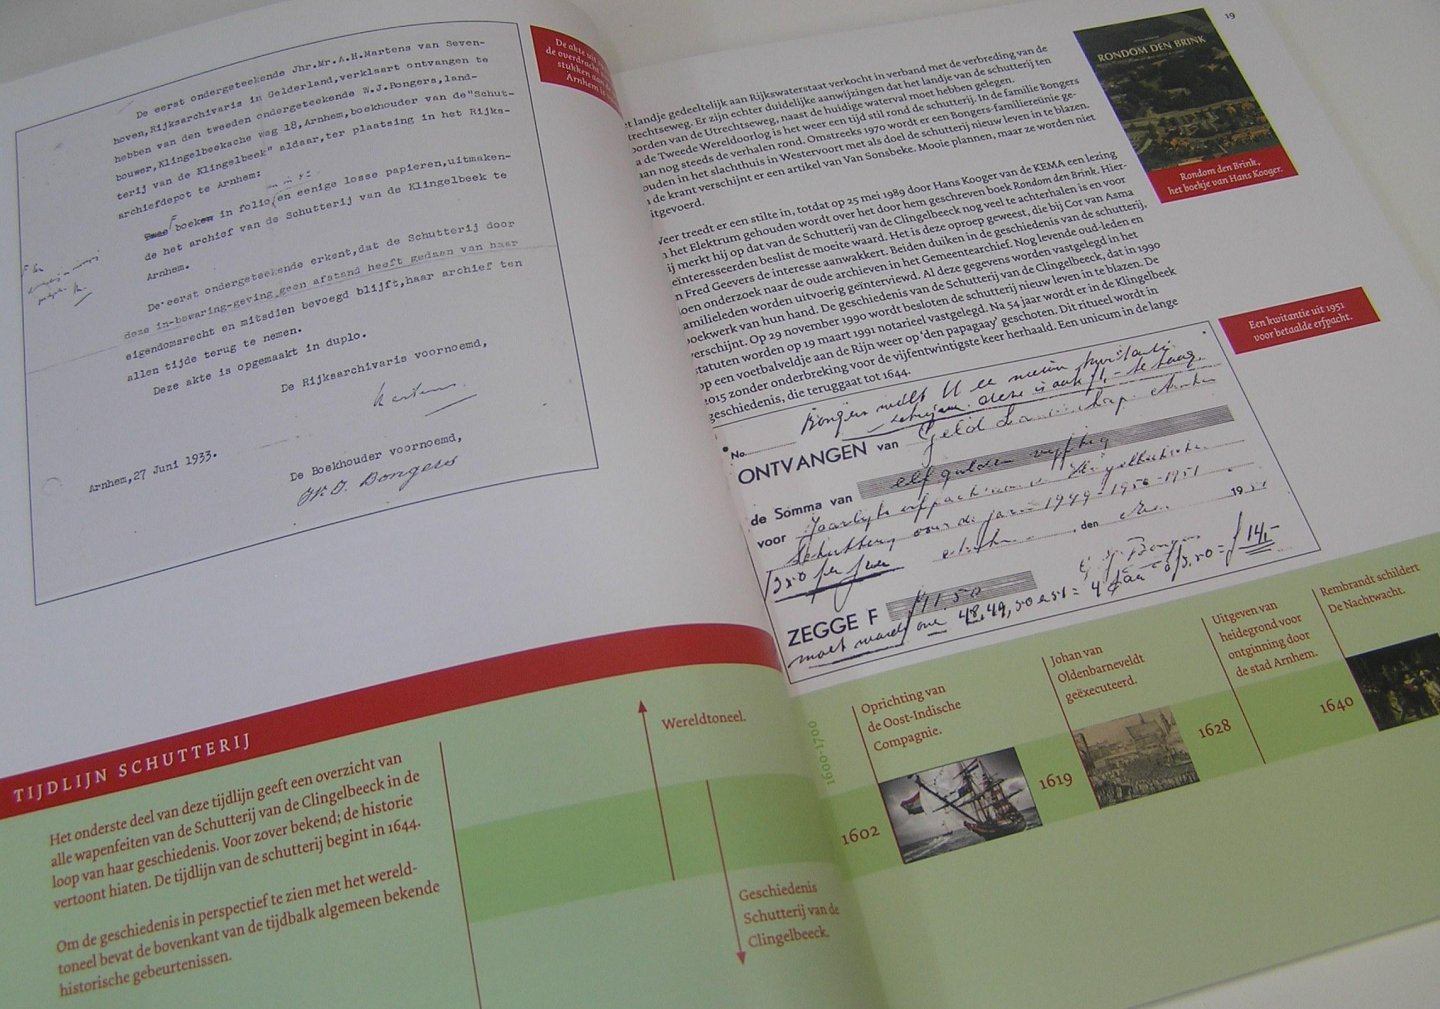 De eerst ondergeteekende Jhr.Mr.A.H.Martens van Seven-
hoven,Rijksarchivaris in Gelderland,verklaart ontvangen te
hebben van den tweeden ondergeteekende W.J.Bongers,land-
bouwer,Klingelbeeksche weg 18,Arnhem,boekhouder van de "Schut-
terij van de Klingelbeek" aldaar,ter plaatsing in het Rijks-
archiefdepot te Arnhem:
boeken in folio en eenige losse papieren,uitmaken-
de het archief van de Schutterij van de Klingelbeek te
Arnhem.
De eerst ondergeteekende erkent,dat de Schutterij door
deze in-bewaring-geving geen afstand heeft gedaan van haar
eigendomsrecht en mitsdien bevoegd blijft,haar archief ten
allen tijde terug te nemen.
Deze akte is opgemaakt in duplo.
De Rijksarchivaris voornoemd,
Martens
Arnhem,27 Juni 1933.
De Boekhouder voornoemd,
W. J. Bongers
De akte uit
de overdracht
stukken aan
Arnhem
TIJDLIJN SCHUTTERIJ
Het onderste deel van deze tijdlijn geeft een overzicht van
alle wapenfeiten van de Schutterij van de Clingelbeeck in de
loop van haar geschiedenis. Voor zover bekend; de historie
vertoont hiaten. De tijdlijn van de schutterij begint in 1644.
Om de geschiedenis in perspectief te zien met het wereld-
toneel bevat de bovenkant van de tijdbalk algemeen bekende
historische gebeurtenissen.
Wereldtoneel.
Geschiedenis
Schutterij van de
Clingelbeeck.
19
landje gedeeltelijk aan Rijkswaterstaat verkocht in verband met de verbreding van de
trechtseweg. Er zijn echter duidelijke aanwijzingen dat het landje van de schutterij ten
oorden van de Utrechtseweg, naast de huidige waterval moet hebben gelegen.
a de Tweede Wereldoorlog is het weer een tijd stil rond de schutterij. In de familie Bongers
aan nog steeds de verhalen rond. Omstreeks 1970 wordt er een Bongers-familiereünie ge-
ouden in het slachthuis in Westervoort met als doel de schutterij nieuw leven in te blazen.
n de krant verschijnt er een artikel van Van Sonsbeke. Mooie plannen, maar ze worden niet
itgevoerd.
Weer treedt er een stilte in, totdat op 25 mei 1989 door Hans Kooger van de KEMA een lezing
n het Elektrum gehouden wordt over het door hem geschreven boek Rondom den Brink. Hier-
ij merkt hij op dat van de Schutterij van de Clingelbeeck nog veel te achterhalen is en voor
eïnteresseerden beslist de moeite waard. Het is deze oproep geweest, die bij Cor van Asma
n Fred Geevers de interesse aanwakkert. Beiden duiken in de geschiedenis van de schutterij.
oen onderzoek naar de oude archieven in het Gemeentearchief. Nog levende oud-leden en
amilieleden worden uitvoerig geïnterviewd. Al deze gegevens worden vastgelegd in het
oekwerk van hun hand. De geschiedenis van de Schutterij van de Clingelbeeck, dat in 1990
verschijnt. Op 29 november 1990 wordt besloten de schutterij nieuw leven in te blazen. De
statuten worden op 19 maart 1991 notarieel vastgelegd. Na 54 jaar wordt er in de Klingelbeek
op een voetbalveldje aan de Rijn weer op 'den papagaay' geschoten. Dit ritueel wordt in
2015 zonder onderbreking voor de vijfentwintigste keer herhaald. Een unicum in de lange
geschiedenis, die teruggaat tot 1644.
RONDOM DEN BRINK
Rondom den Brink,
het boekje van Hans Kooger.
Een kwitantie uit 1951
voor betaalde erfpacht.
Bongers wilt U een nieuw kwitantie
schrijven. deze is ook f 1,- te laag
No.
ONTVANGEN van
de Somma van elf gulden vijftig
voor Jaarlijks erfpacht Klingelbeeksche
Schutterij over de jaren 1949-1950-1951
3.50 per jaar
, den 1951
ZEGGE F 11.50
moet worden over 48,49,50 en 51 = 4 jaar à f 3,50 = f 14,-
1600-1700
Oprichting van
de Oost-Indische
Compagnie.
1602
Johan van
Oldenbarneveldt
geëxecuteerd.
1619
Uitgeven van
heidegrond voor
ontginning door
de stad Arnhem.
1628
Rembrandt schildert
De Nachtwacht.
1640